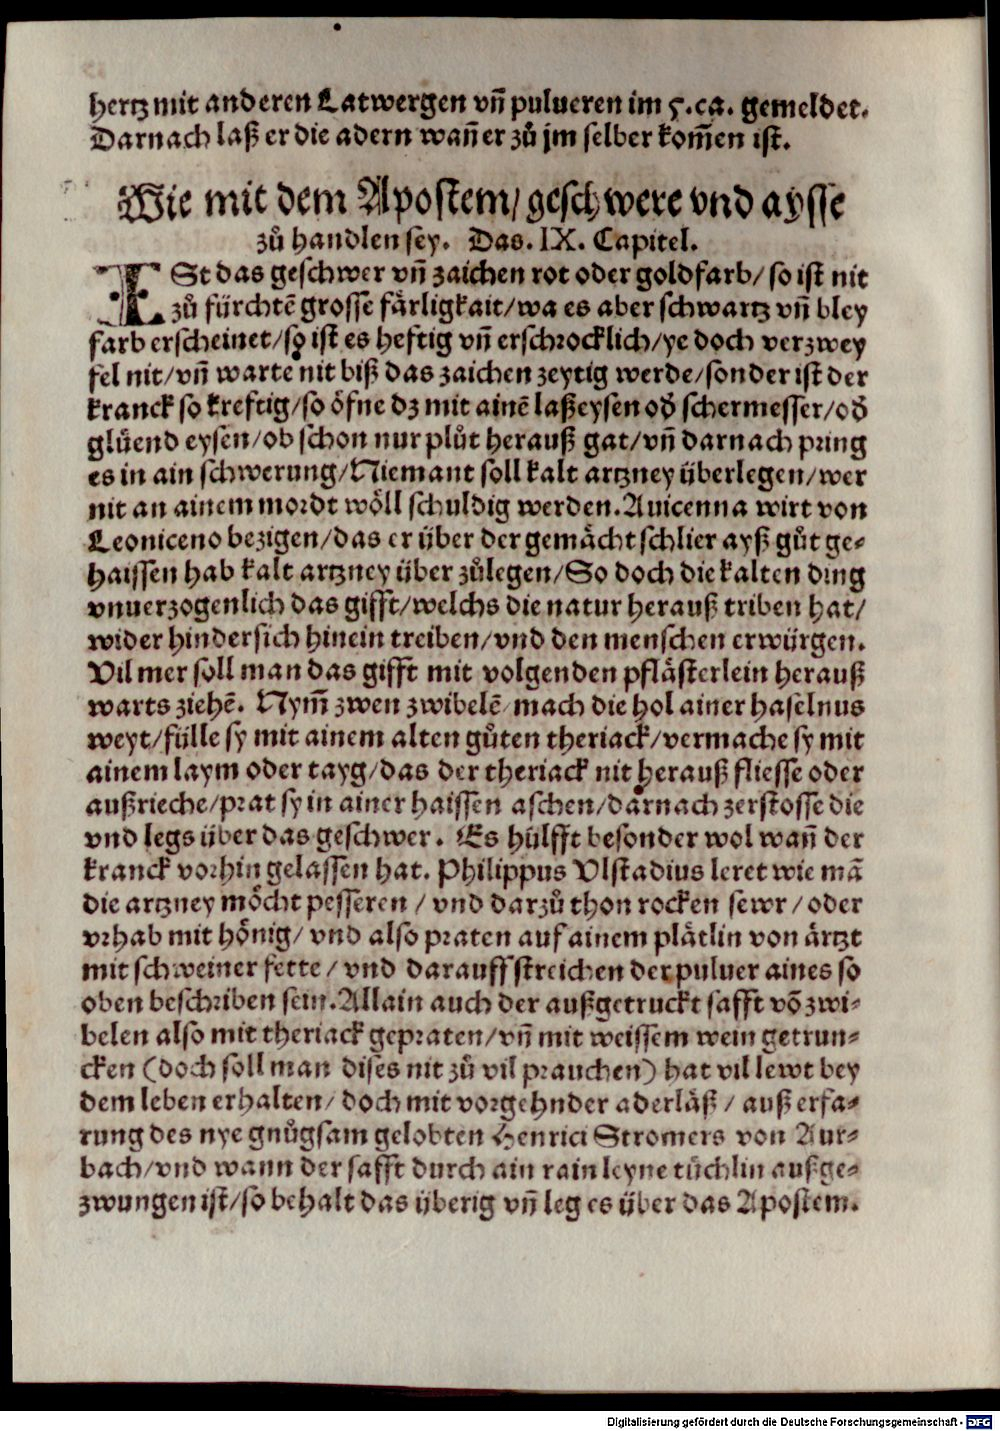 hertz mit anderen Latwergen vñ pulueren im 5.ca. gemeldet.
Darnach laß er die adern wañ er zů jm selber kom̃en ist.
Wie mit dem Apostem/ geschwere vnd aysse
zů handlen sey. Das. IX. Capitel.
ISt das geschwer vñ zaichen rot oder goldfarb/ so ist nit
zů fürchtē grosse färligkait/wa es aber schwartz vñ bley
farb erscheinet/so ist es heftig vñ erschrocklich/ye doch verzwey
fel nit/vñ warte nit biß das zaichen zeytig werde/sonder ist der
kranck so kreftig/so öfne dz mit ainē laßeysen oď schermesser/oď
glüend eysen/ob schon nur plůt herauß gat/vñ darnach pring
es in ain schwerung/Niemant soll kalt artzney überlegen/wer
nit an ainem mordt wöll schuldig werden.Auicenna wirt von
Leoniceno bezigen/das er über der gemächt schlier ayß gůt ge⸗
haissen hab kalt artzney über zůlegen/So doch die kalten ding
vnuerzogenlich das gifft/welchs die natur herauß triben hat/
wider hindersich hinein treiben/vnd den menschen erwürgen.
Vil mer soll man das gifft mit volgenden pflästerlein herauß
warts ziehē. Nym̃ zwen zwibelē/mach die hol ainer haselnus
weyt/fülle sy mit ainem alten gůten theriack/vermache sy mit
ainem laym oder tayg/das der theriack nit herauß fliesse oder
außrieche/prat sy in ainer haissen aschen/darnach zerstosse die
vnd legs über das geschwer. Es hülfft besonder wol wañ der
kranck vorhin gelassen hat. Philippus Vlstadius leret wie mā
die artzney möcht pesseren / vnd darzů thon rocken sewr / oder
vrhab mit hönig/ vnd also praten auf ainem plätlin von ärtzt
mit schweiner fette / vnd darauff streichen der puluer aines so
oben beschriben sein.Allain auch der außgetruckt safft vō zwi⸗
belen also mit theriack gepraten/vñ mit weissem wein getrun⸗
cken (doch soll man dises nit zů vil prauchen) hat vil lewt bey
dem leben erhalten/ doch mit vorgehnder aderläß / auß erfa⸗
rung des nye gnůgsam gelobten Henrici Stromers von Aur⸗
bach/vnd wann der safft durch ain rain leyne tüchlin außge⸗
zwungen ist/so behalt das überig vñ leg es über das Apostem.
Digitalisierung gefördert durch die Deutsche Forschungsgemeinschaft - DFG